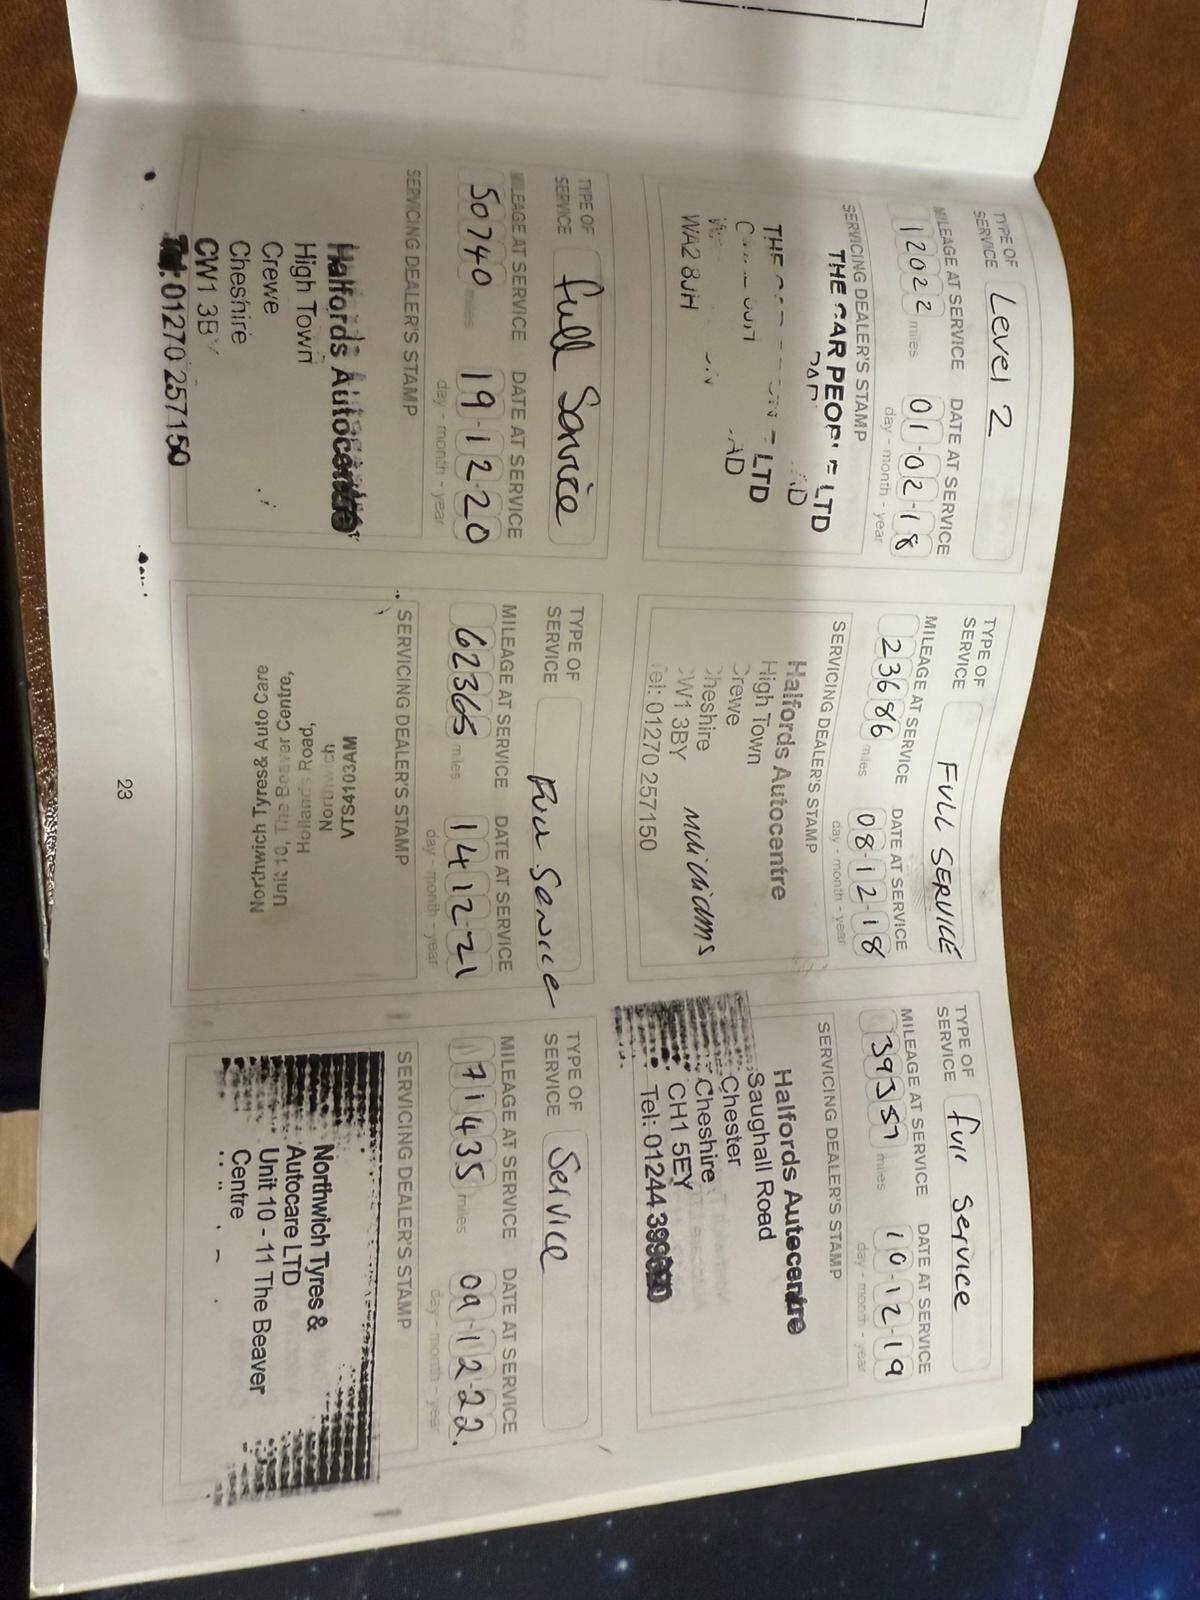 TYPE OF SERVICE Level 2
MILEAGE AT SERVICE DATE AT SERVICE
12022 miles 01-02-18
day - month - year
SERVICING DEALER'S STAMP
THE CAR PEOPLE LTD
LTD
WA2 8JH
TYPE OF SERVICE FULL SERVICE
MILEAGE AT SERVICE DATE AT SERVICE
23686 miles 08-12-18
day - month - year
SERVICING DEALER'S STAMP
Halfords Autocentre
High Town
Crewe
Cheshire
CW1 3BY
Tel: 01270 257150
TYPE OF SERVICE full Service
MILEAGE AT SERVICE DATE AT SERVICE
39357 miles 10-12-19
day - month - year
SERVICING DEALER'S STAMP
Halfords Autocentre
Saughall Road
Chester
Cheshire
CH1 5EY
Tel: 01244
TYPE OF SERVICE full Service
MILEAGE AT SERVICE DATE AT SERVICE
50740 miles 19-12-20
day - month - year
SERVICING DEALER'S STAMP
Halfords Autocentre
High Town
Crewe
Cheshire
CW1 3BY
Tel. 01270 257150
TYPE OF SERVICE Full Service
MILEAGE AT SERVICE DATE AT SERVICE
62365 miles 14-12-21
day - month - year
SERVICING DEALER'S STAMP
Northwich Tyres& Auto Care
Unit 10, The Beaver Centre,
Hollands Road,
Northwich
VTS4103AM
TYPE OF SERVICE Service
MILEAGE AT SERVICE DATE AT SERVICE
71435 miles 09-12-22.
day - month - year
SERVICING DEALER'S STAMP
Northwich Tyres &
Autocare LTD
Unit 10 - 11 The Beaver
Centre
23